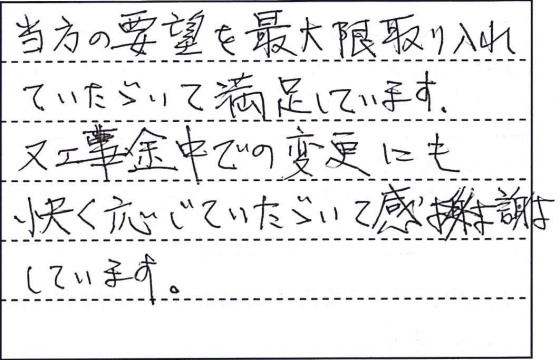 当方の要望を最大限取り入れ
ていただいて満足しています。
又工事途中での変更にも
快く応じていただいて感謝
しています。